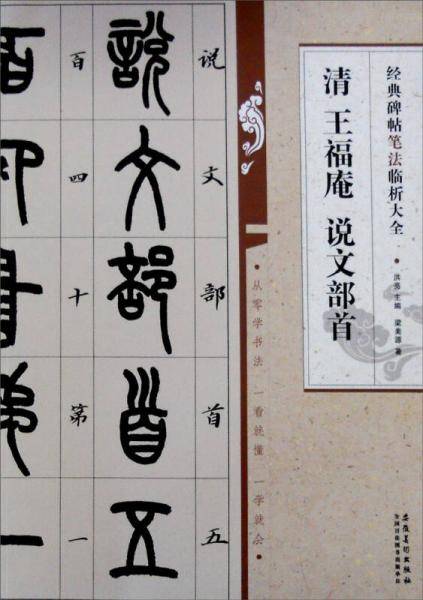 经典碑帖笔法临析大全
•洪亮 主编 梁美源 著
清 王福庵 说文部首
安徽美术出版社
全国百佳图书出版单位
•从零学书法 一看就懂 一学就会•
说文部首五
說文部首五
百四十第一
百四十第一